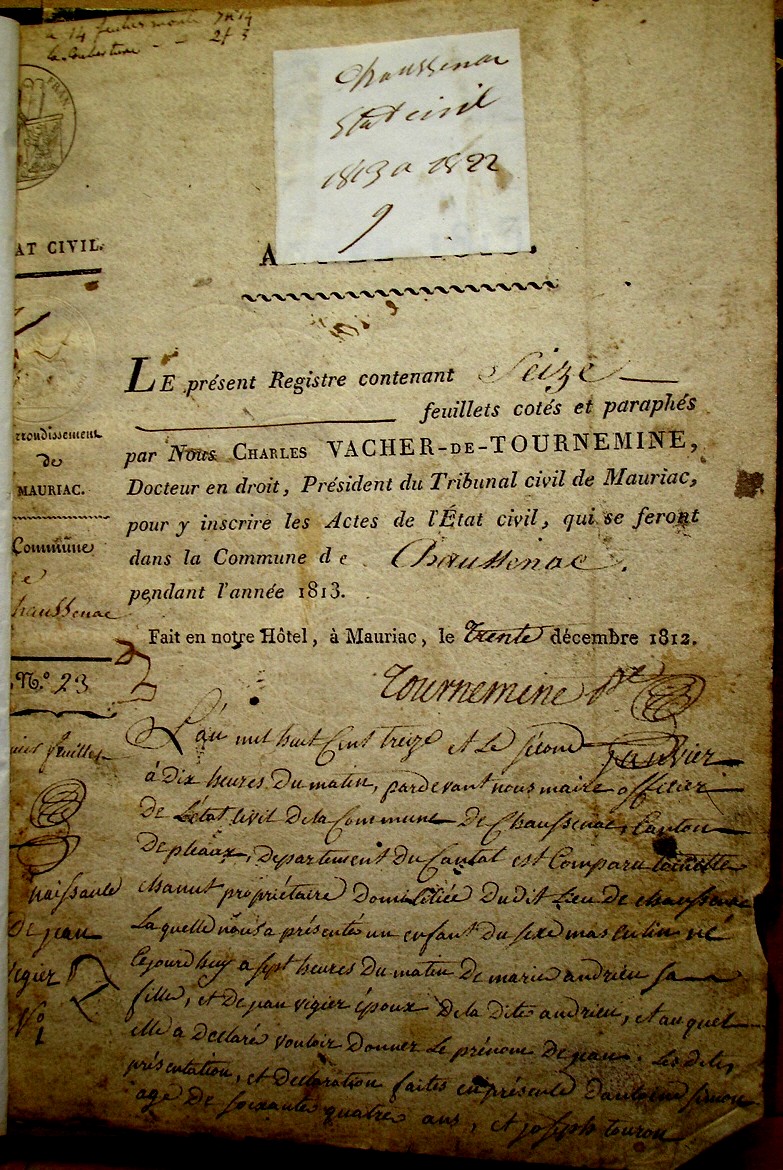 a 14 feuilles monte 7# 14
la Couverture - - 2f 3
Chaussenac
Etat civil
1813 a 1822
9
FRAN
AT CIVIL.
A
LE présent Registre contenant Seize
feuillets cotés et paraphés
par Nous CHARLES VACHER-DE-TOURNEMINE,
Docteur en droit, Président du Tribunal civil de Mauriac,
pour y inscrire les Actes de l'État civil, qui se feront
dans la Commune de Chaussenac.
pendant l'année 1813.
Fait en notre Hôtel, à Mauriac, le trente décembre 1812.
Tournemine
rrondissement
de
MAURIAC.
Commune
e
haussenac
N.º 23
feuillet
naissance
de jean
vigier
Nº
1
L'an mil huit Cent treize et Le second janvier
à Dix heures Du matin, pardevant nous maire officier
De L'état Civil De la Commune De Chaussenac, Canton
De pleaux, Departement Du Cantal est Comparu
chanut propriétaire Domiciliée Du dit Lieu De chaussenac
Laquelle nous a présenté un enfant Du sexe masculin né
Cejourdhuy a sept heures Du matin De marie andrieu sa
fille, et De jean vigier époux De la Dite andrieu, et auquel
elle a Declaré vouloir Donner Le prénom De jean. Les dites
présentation, et Declaration faites en présence D'antoine simon
agé De soixante quatre ans, et joseph touron